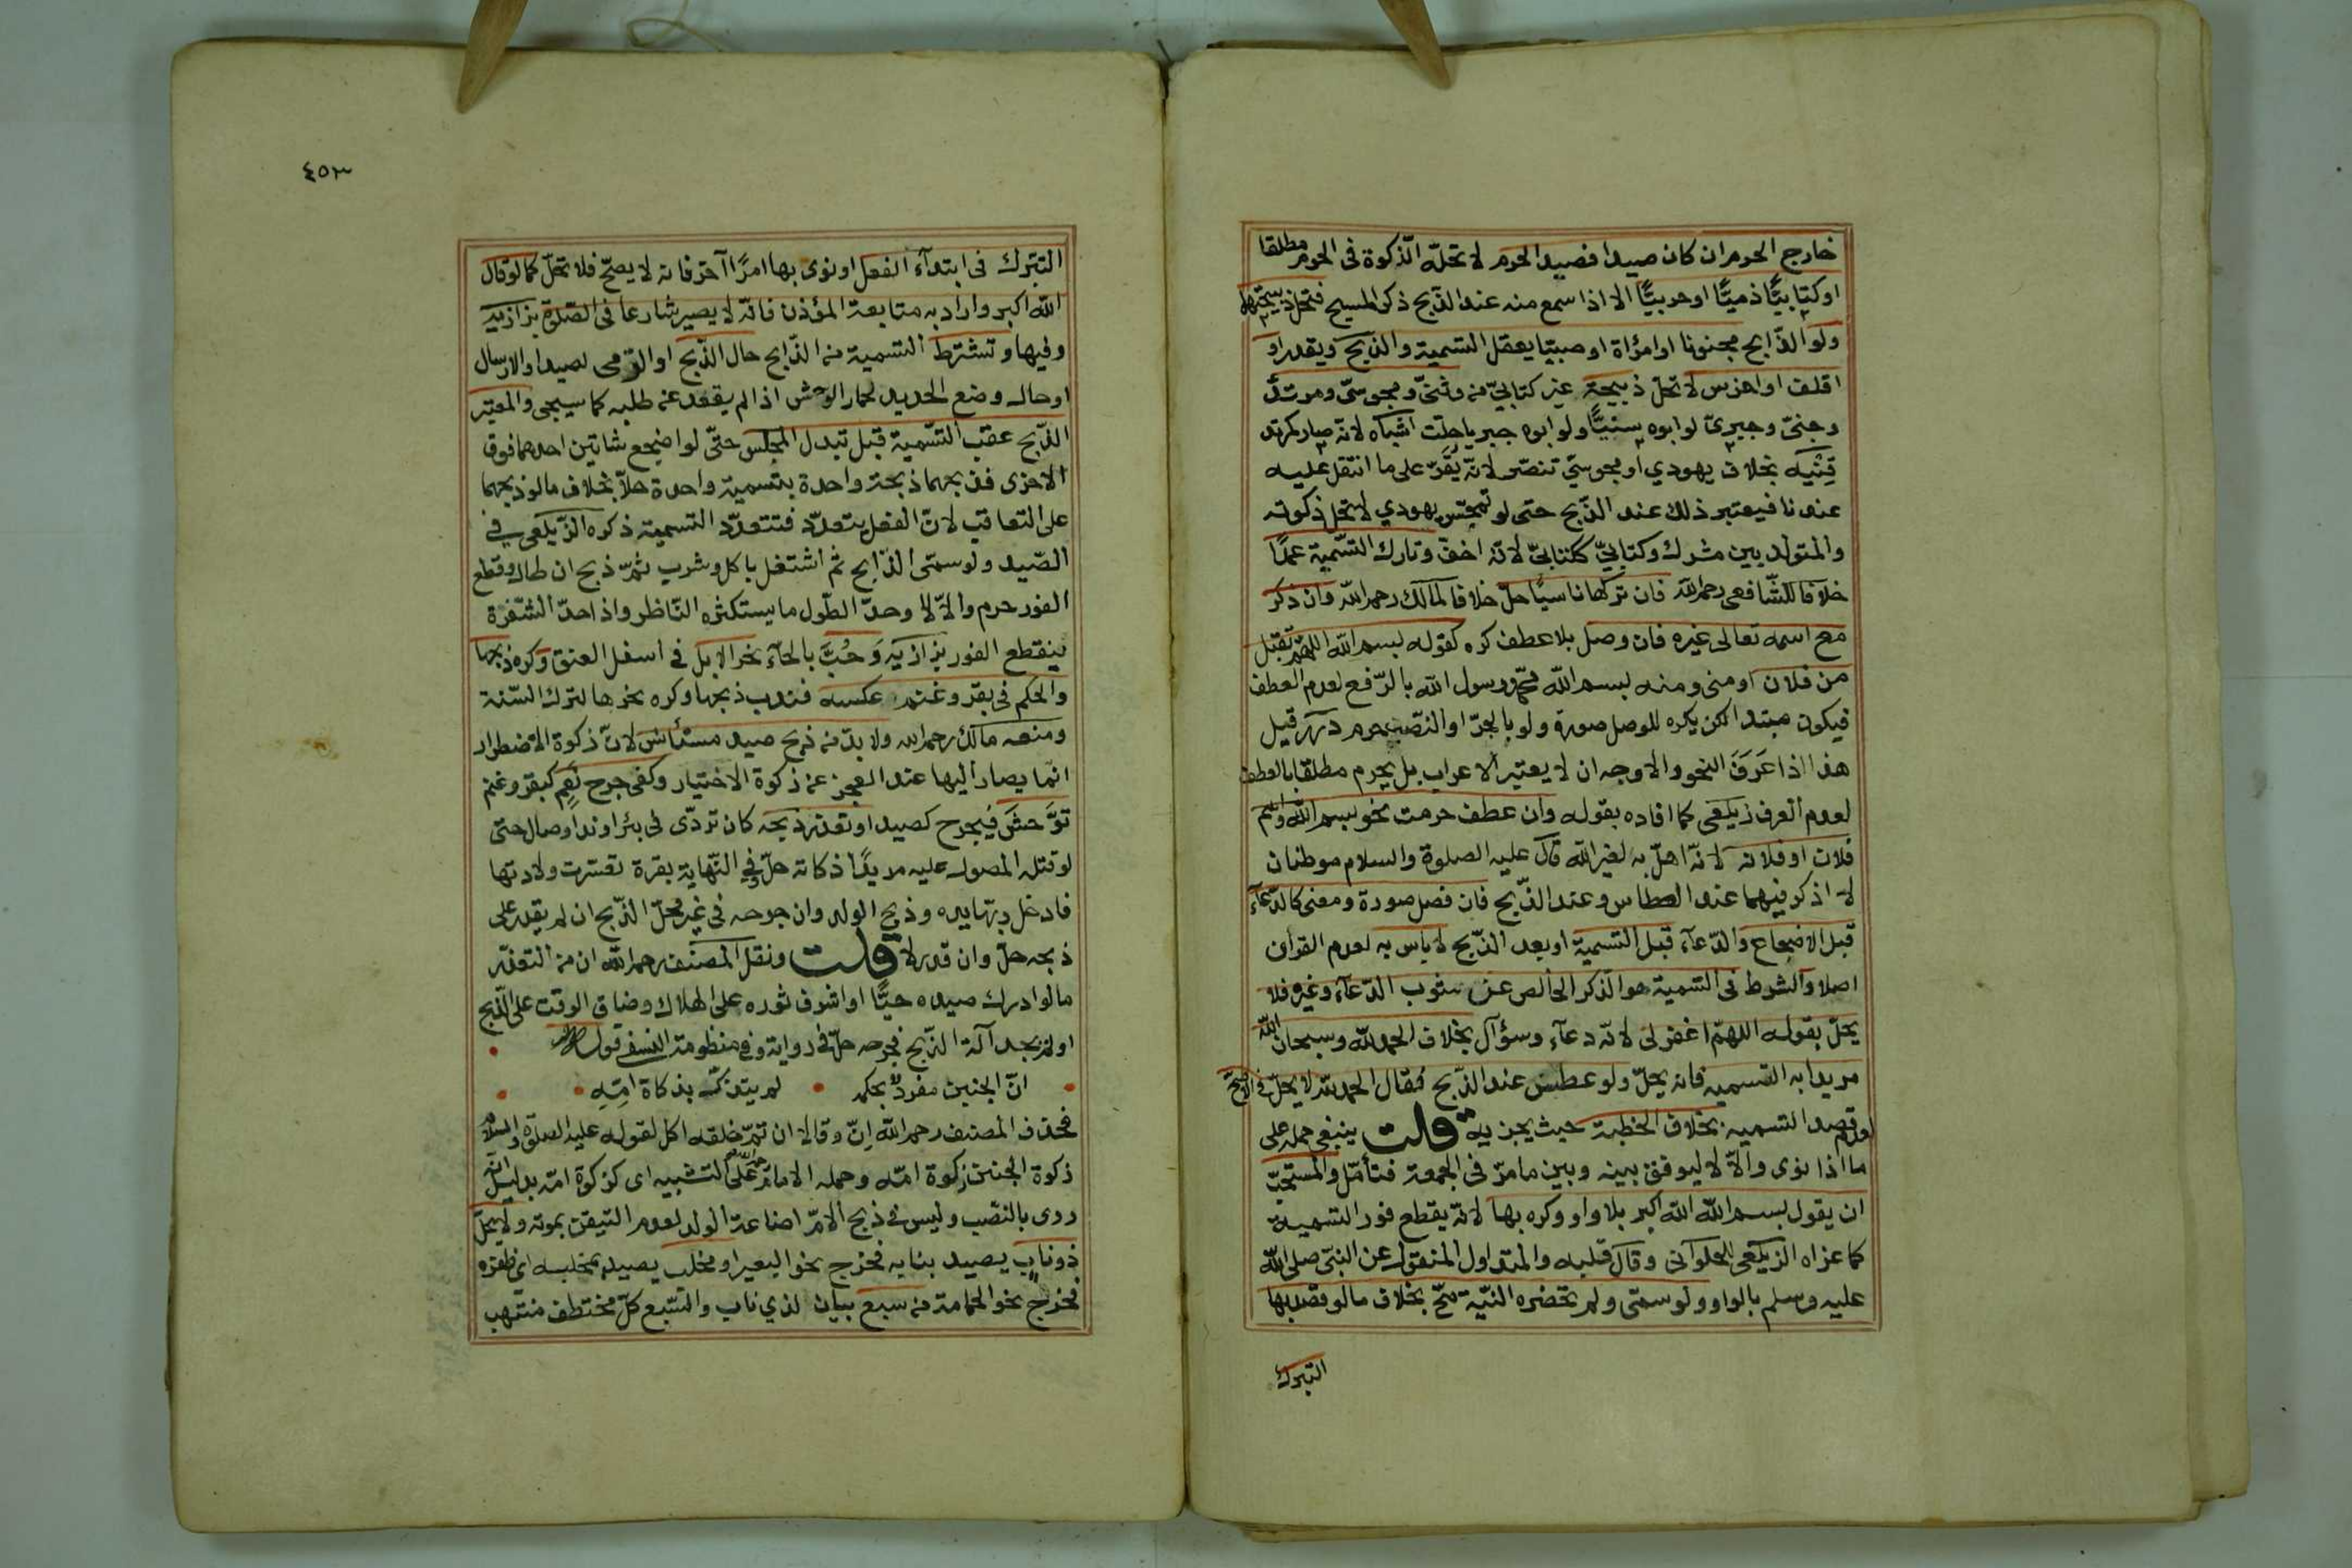 خارج الحرم ان كان صيدا فصيد الحرم لا تحلّه الذّكوة فى الحرم مطلقا
اوكتابيًّا ذميًّا اوحربيًّا الا اذا سمع منه عند الذّبح ذكر المسيح فتحل ذبيحتهما
ولو الذّابح مجنونا او امرأة او صبيّا يعقل التسمية والذبح ويقدر او
اقلف او اخرس لا تحلّ ذبيحة غير كتابيّ من وثنىّ ومجوسىّ ومرتدّ
وجنىّ وجبرىّ لو ابوه سنيًّا ولو ابوه جبريا حلّت اشباه لانّه صار كمرتد
قِنْيَه بخلاف يهودي او مجوسىّ تنصّر لانّه يُقَرّ على ما انتقل عليه
عندنا فيعتبر ذلك عند الذّبح حتى لو تمجّس يهودي لا تحل ذكوته
والمتولّد بين مشرك وكتابىّ ككتابىّ لانّه اخفّ وتارك التسّمية عمدًا
خلافا للشّافعى رحمه الله فان تركها ناسيًا حلّ خلافا لمالك رحمه الله وان ذكر
مع اسمه تعالى غيره فان وصل بلا عطف كره كقوله بسم الله اللهمّ تقبّل
من فلان او منى ومنه بسم الله محمّد رسول الله بالرّفع لعدم العطف
فيكون مبتدا لكن يكره للوصل صورة ولو بالجرّ او النصّب حرم درر قيل
هذا اذا عَرَفَ النحو والاوجه ان لا يعتبر الاعراب بل يحرم مطلقا بالعطف
لعدم العرف زيلعى كما افاده بقوله وان عطف حرمت نحو بسم الله واسم
فلان او فلانه لانّه اهلّ به لغير الله قال عليه الصلوة والسلام موطنان
لا اذكر فيهما عند العطاس وعند الذّبح فان فصل صورة ومعنى كالدّعآء
قبل الاضجاع والدّعآء قبل التسمية او بعد الذّبح لا باس به لعدم القران
اصلا والشرط فى التسمية هو الذكر الخالص عن شوب الدّعآء وغيره فلا
يحلّ بقوله اللهمّ اغفر لى لانّه دعآء وسؤال بخلاف الحمد لله وسبحان الله
مريدا به التسميه فانه يحلّ ولو عطس عند الذّبح فقال الحمد لله لا يحلّ فى الاصحّ
لعدم قصد التسميه بخلاف الخطبة حيث يجزيه قلت ينبغى حمله على
ما اذا نوى والاّ لا ليوفق بينه وبين ما مرّ فى الجمعة فتأمّل والمستحبّ
ان يقول بسم الله الله اكبر بلا واو وكره بها لانّه يقطع فور التسمية
كما عزاه الزيلعى للحلوانى وقال قبله والمتداول المنقول عن النبىّ صلى الله
عليه وسلم بالواو ولو سمّى ولم تحضره النيّة صحّ بخلاف ما لو قصد بها
التبرك
٤٥٣
التبّرك فى ابتدآء الفعل او نوى بها امرًا آخر فانه لا يصحّ فلا تحلّ كما لو قال
الله اكبر واراد به متابعة المؤذن فانّه لا يصير شارعا فى الصّلوة بزازيه
وفيها وتشترط التسمية من الذّابح حال الذّبح او الرّمى لصيد او الارسال
او حال وضع الحديد لحمار الوحش اذا لم يقعد عن طلبه كما سيجى والمعتبر
الذّبح عقب التسّمية قبل تبدل المجلس حتّى لو اضجع شاتين احدهما فوق
الاخرى فذبحهما ذبحة واحدة بتسمية واحدة حلّا بخلاف ما لو ذبحهما
على التعاقب لانّ الفعل يتعدّد فتتعدّد التسمية ذكره الزّيلعى فى
الصّيد ولو سمّى الذّابح ثم اشتغل باكل وشرب ثمّ ذبح ان طال وقطع
الفور حرم والاّ لا وحدّ الطّول ما يستكثره النّاظر واذا حدّ الشّفرة
ينقطع الفور بزازيه وَحُبَّ بالحآء نحر الابل فى اسفل العنق وكره ذبحها
والحكم فى بقر وغنم عكسه فندب ذبحها وكره نحرها لترك السّنة
ومنعه مالك رحمه الله ولا بدّ من ذبح صيد مستأنس لانّ ذكوة الاضطرار
انّما يصار اليها عند العجز عن ذكوة الاختيار وكفى جرح نَعَم كبقر وغنم
توَّحشَ فيجرح كصيد او تعذر ذبحه كان تردّى فى بئر او ندّ او صال حتى
لو قتله المصول عليه مريدًا ذكاته حلّ وفى النّهاية بقرة تعسّرت ولادتها
فادخل ربّها يده وذبح الولد وان جرحه فى غير محلّ الذّبح ان لم يقدر على
ذبحه حلّ وان قدر لا قلت ونقل المصنف رحمه الله ان من التعذر
ما لو ادرك صيده حيًّا او اشرف ثوره على الهلاك وضاق الوقت على الذّبح
او لم يجد آلة الذّبح فجرحه حلّ فى رواية وفى منظومة النسفى قوله
انّ الجنين مفردٌ بحكمه لم يتذكّ بذكاة امّهِ
فحذف المصنف رحمه الله اِنّ وقالا ان تمّ خلقه اكل لقوله عليه الصلوة والسلام
ذكوة الجنين ذكوة امّه وحمله الامام على التشبيه اى كذكوة امّه بدليل انه
روى بالنصّب وليس فى ذبح الامّ اضاعة الولد لعدم التيقن بموته ولا يحلّ
ذو ناب يصيد بنابه فخرج نحو البعير او مخلب يصيد بمخلبه اى ظفره
فخرج نحو الحمامة من سبع بيان لذي ناب والسّبع كلّ مختطف منتهب